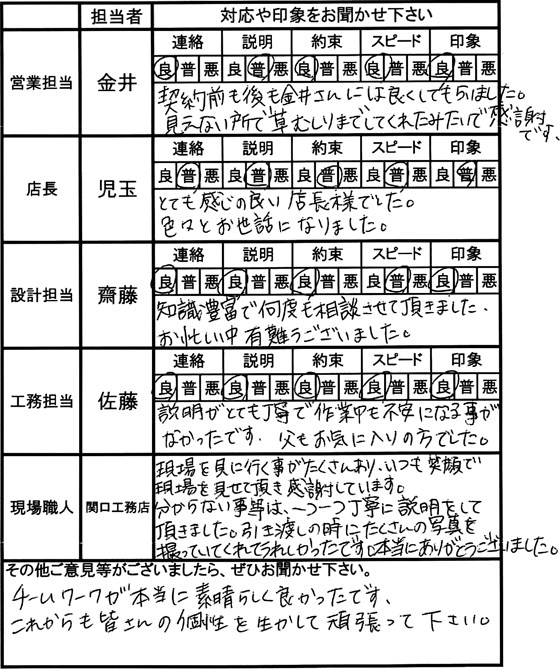 担当者 対応や印象をお聞かせ下さい
営業担当 金井
連絡 説明 約束 スピード 印象
良 普 悪 良 普 悪 良 普 悪 良 普 悪 良 普 悪
契約前も後も金井さんには良くしてもらいました。
見えない所で草むしりまでしてくれたみたいで感謝です、
店長 児玉
連絡 説明 約束 スピード 印象
良 普 悪 良 普 悪 良 普 悪 良 普 悪 良 普 悪
とても感じの良い店長様でした。
色々とお世話になりました。
設計担当 齋藤
連絡 説明 約束 スピード 印象
良 普 悪 良 普 悪 良 普 悪 良 普 悪 良 普 悪
知識豊富で何度も相談させて頂きました、
お忙しい中有難うございました。
工務担当 佐藤
連絡 説明 約束 スピード 印象
良 普 悪 良 普 悪 良 普 悪 良 普 悪 良 普 悪
説明がとても丁寧で作業中も不安になる事が
なかったです、父もお気に入りの方でした。
現場職人 関口工務店
現場を見に行く事がたくさんあり、いつも笑顔で
現場を見せて頂き感謝しています。
分からない事等は、一つ一つ丁寧に説明をして
頂きました。引き渡しの時にたくさんの写真を
撮っていてくれてうれしかったです。本当にありがとうございました。
その他ご意見等がございましたら、ぜひお聞かせ下さい。
チームワークが本当に素晴らしく良かったです、
これからも皆さんの個性を生かして頑張って下さい。